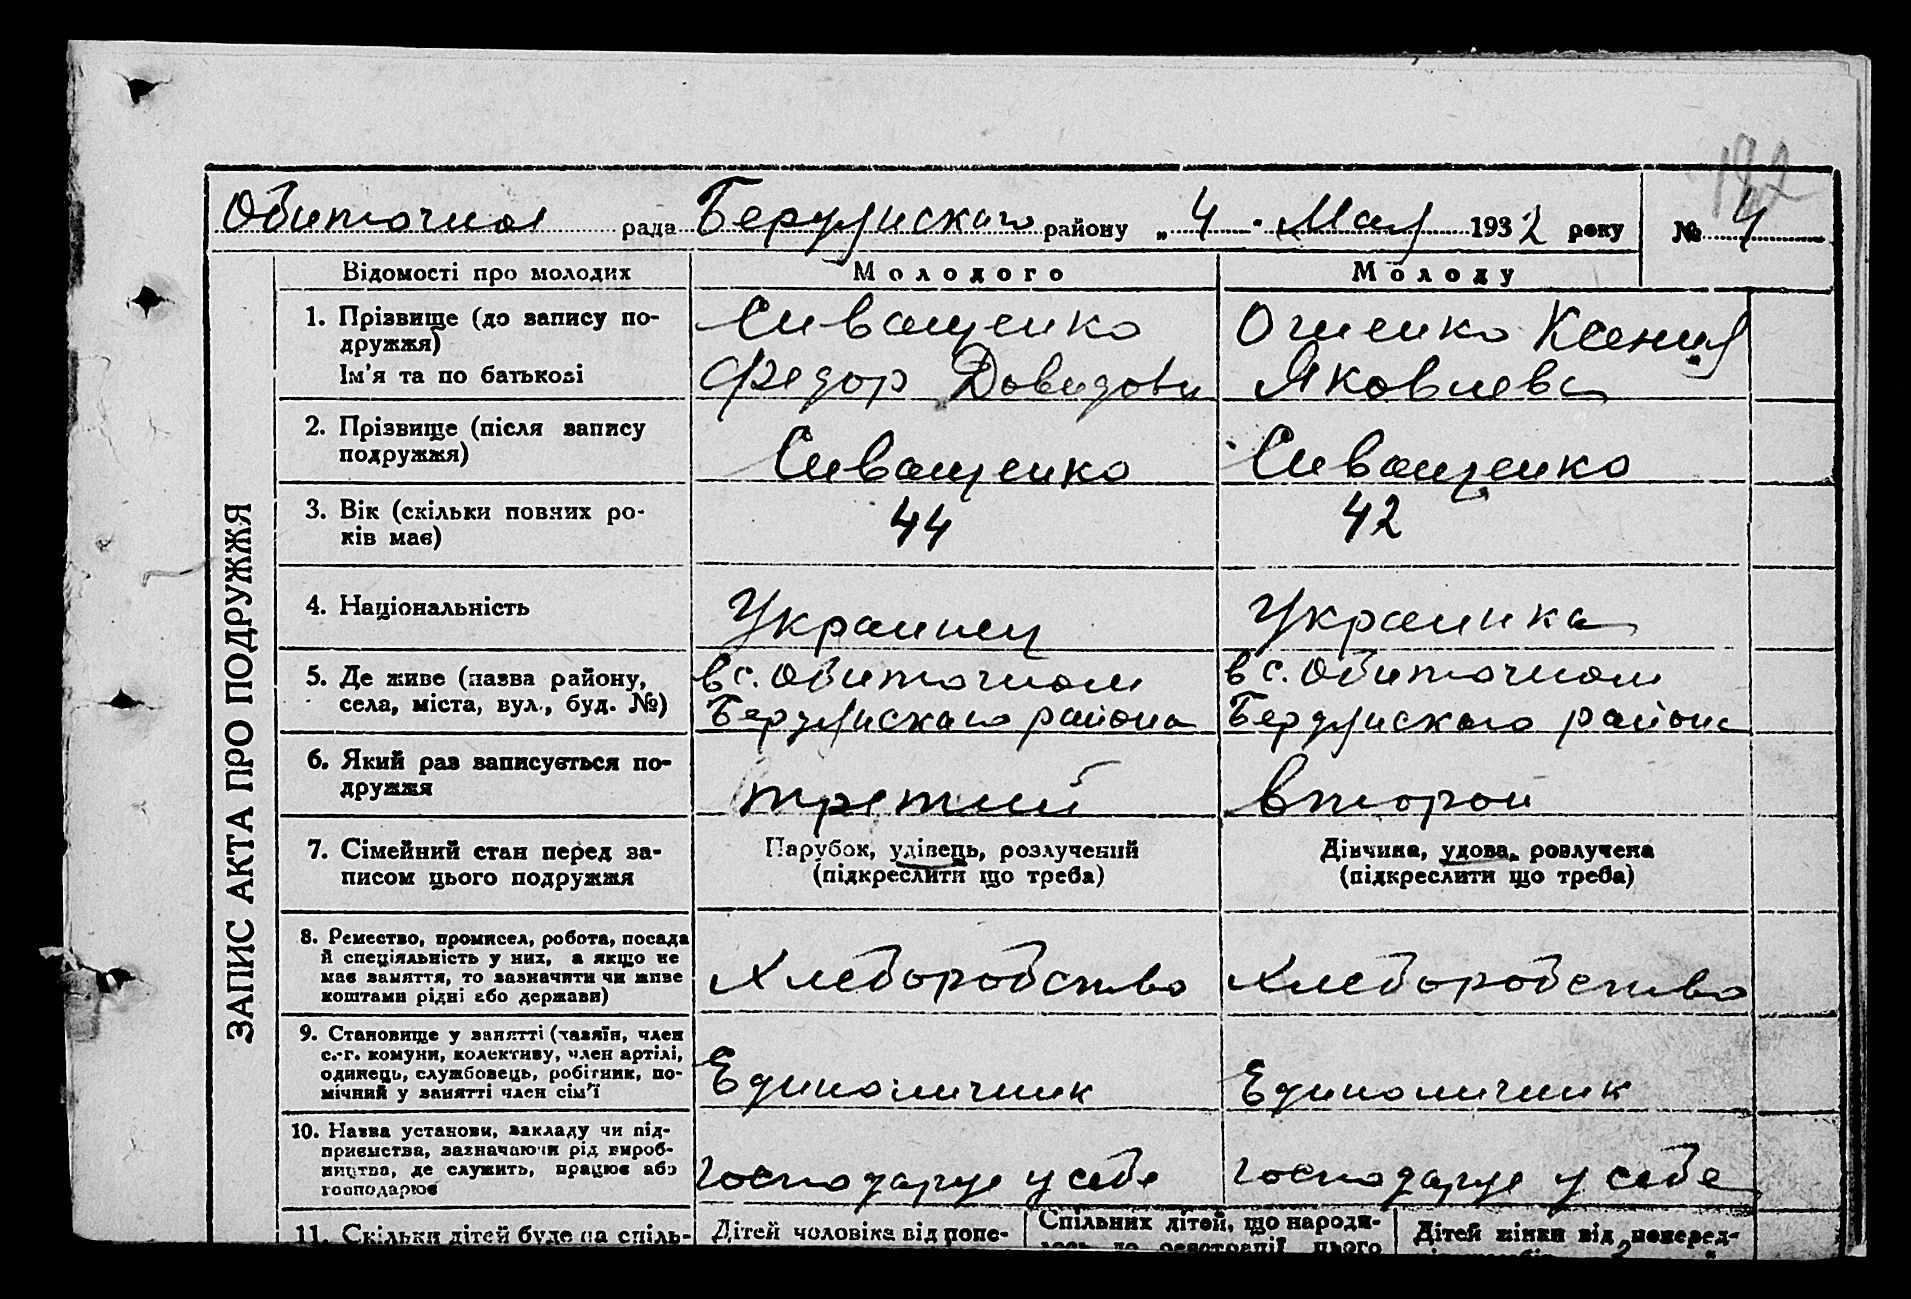 122
Обиточная рада Бердянского району „ 4 " Мая 1932 року № 4
Відомості про молодих Молодого Молоду
1. Прізвище (до запису по- Сиващенко Ониенко Ксения
дружжя)
Ім'я та по батькові Федор Давидови Яковлева
2. Прізвище (після запису
подружжя) Сиващенко Сиващенко
3. Вік (скільки повних ро- 44 42
ків має)
4. Національність Украинец Украинка
5. Де живе (назва району, в с. Обиточном в с. Обиточном
села, міста, вул., буд. №) Бердянскаго района Бердянскаго района
6. Який раз записується по-
дружжя третий второй
7. Сімейний стан перед за- Парубок, удівець, розлучений Дівчина, удова, розлучена
писом цього подружжя (підкреслити що треба) (підкреслити що треба)
8. Ремество, промисел, робота, посада
й спеціяльність у них, а якщо не
має заняття, то зазначити чи живе Хлеборобство Хлеборобство
коштами рідні або держави)
9. Становище у занятті (хазяїн, член
с.-г. комуни, колективу, член артілі,
одинець, службовець, робітник, по- Единоличник Единоличник
мічний у занятті член сім'ї
10. Назва установи, закладу чи під-
приємства, зазначаючи рід вироб-
ництва, де служить, працює або господарує у себе господарує у себе
господарює
11. Скільки дітей буде на спіль- Дітей чоловіка від попе- Спільних дітей, що народи- Дітей жінки від поперед-
лось до реєстрації цього
ЗАПИС АКТА ПРО ПОДРУЖЖЯ